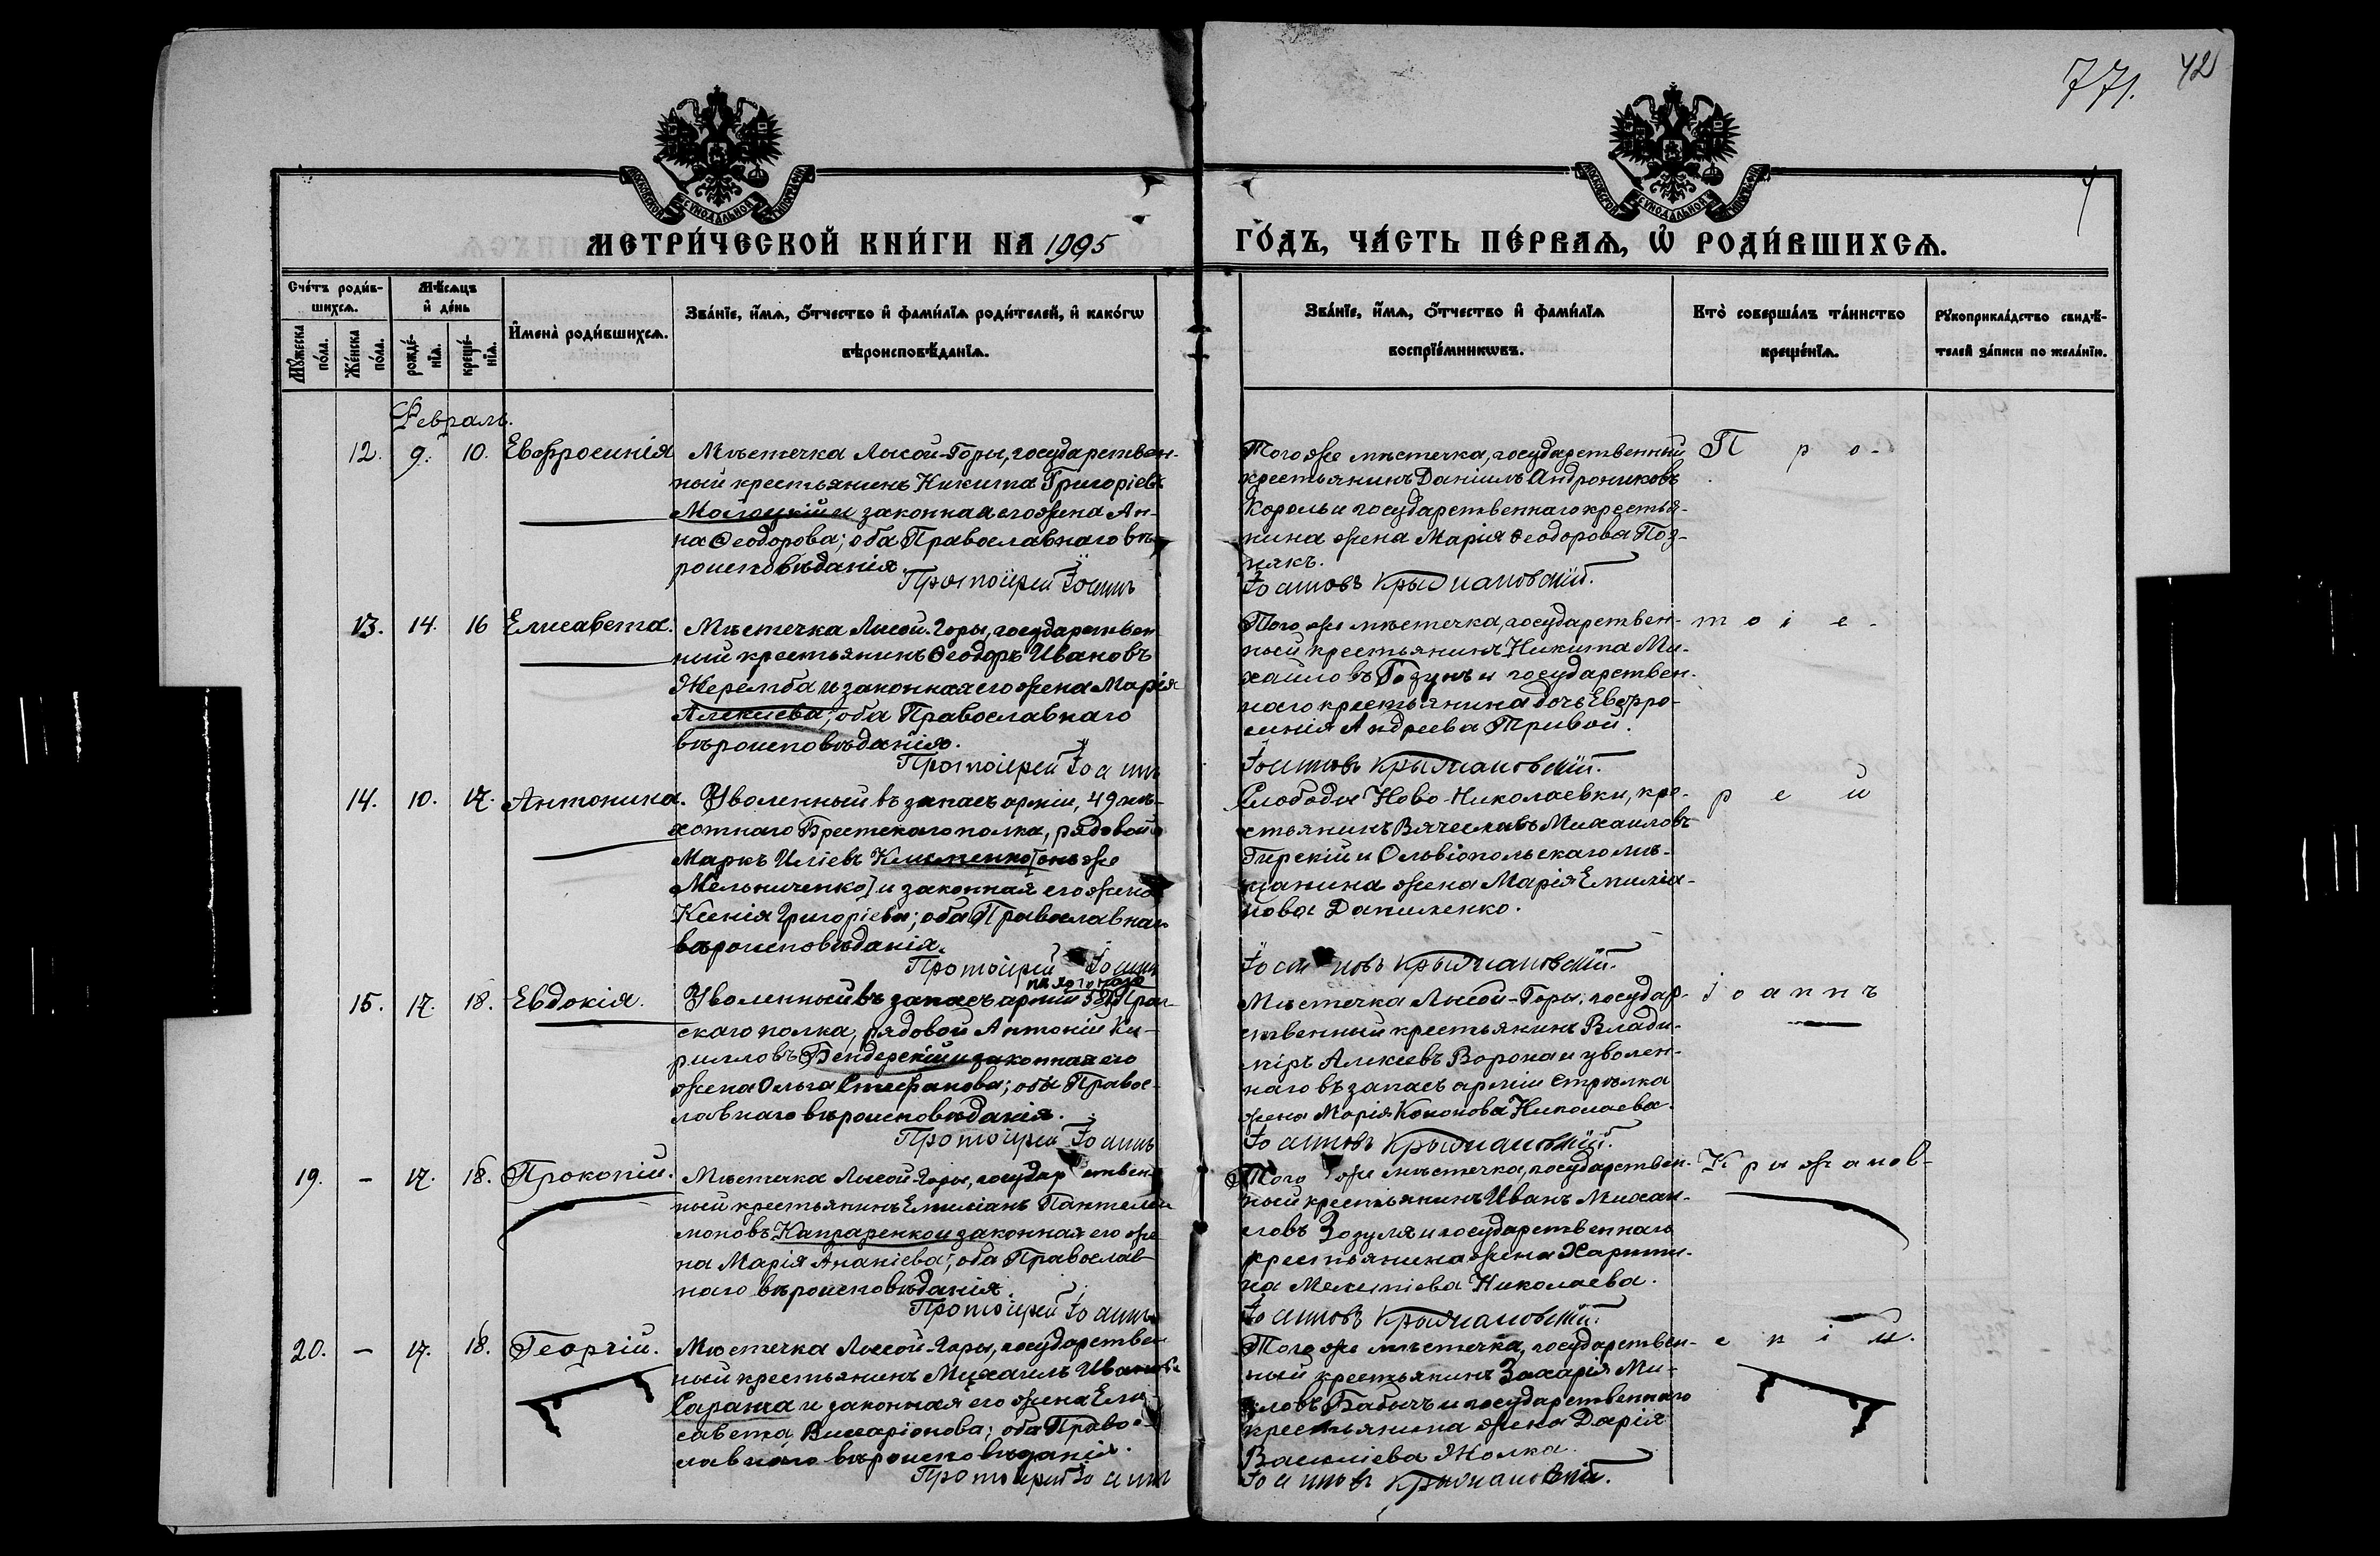 771.
42
МОСКОВСКОЙ СѴНОДАЛЬНОЙ ТИПОГРАФІИ
МОСКОВСКОЙ СѴНОДАЛЬНОЙ ТИПОГРАФІИ
МЕТРИ́ЧЕСКОЙ КНИ́ГИ НА 1905
ГО́ДЪ, ЧА́СТЬ ПЕ́РВАѦ, Ѽ РОДИ́ВШИХСѦ.
Сче́тъ роди́в-
шихсѧ.
Мѣ́сѧцъ
и҆ де́нь
Мꙋ́жеска по́ла.
Же́нска по́ла.
рожде́-нїѧ.
креще́-нїѧ.
И҆мена̀ роди́вшихсѧ.
Зва́нїе, и҆́мѧ, ѻ҆́тчество и҆ фами́лїѧ роди́телей, и҆ како́гѡ
вѣроисповѣ́данїѧ.
Зва́нїе, и҆́мѧ, ѻ҆́тчество и҆ фами́лїѧ
воспрїе́мникѡвъ.
Кто̀ соверша́лъ та́инство
креще́нїѧ.
Рꙋкоприкла́дство свидѣ́-
телей за́писи по жела́нїю.
Февраль.
12. 9. 10. Евфросинія
Мѣстечка Лысой-Горы, государствен-
ный крестьянинъ Никита Григоріевъ
Молоцкій и законная его жена Ан-
на Ѳеодорова; оба Православнаго вѣ-
роисповѣданія.
Протоіерей Іоаннъ
Того же мѣстечка, государственный
крестьянинъ Даніилъ Андрониковъ
Король и государственнаго крестья-
нина жена Марія Ѳеодорова Поз-
някъ.
Іоанновъ Крыжановскій.
П р о-
13. 14. 16 Елисавета.
Мѣстечка Лысой-Горы, государствен
ный крестьянинъ Ѳеодоръ Ивановъ
Жеремба и законная его жена Марія
Алексіева; оба Православнаго
вѣроисповѣданія.
Протоіерей Іоаннъ
Того же мѣстечка, государствен-
ный крестьянинъ Никита Ми-
хаиловъ и государствен-
наго крестьянина дочь Евфро-
синія Андреева Тривой.
Іоанновъ Крыжановскій.
т о і е-
14. 10. 17. Антонина.
Уволенный въ запасъ арміи, 49 пѣ-
хотнаго Брестскаго полка, рядовой
Маркъ Иліевъ Клименко [онъ же
Мельниченко] и законная его жена
Ксенія Григоріева; оба Православнаго
вѣроисповѣданія.
Протоіерей Іоаннъ
Слободы Ново-Николаевки, кре-
стьянинъ Вячеславъ Михаиловъ
и Ольвіопольскаго мѣ-
щанина жена Марія Емиліа-
нова Даниленко.
Іоанновъ Крыжановскій.
р е й
15. 17. 18. Евдокія.
Уволенный въ запасъ арміи 58 пѣхотнаго Праг-
скаго полка, рядовой Антоній Ки-
рилловъ Бендерскій и законная его
жена Ольга Стефанова; оба Правос-
лавнаго вѣроисповѣданія.
Протоіерей Іоаннъ
Мѣстечка Лысой-Горы, государ-
ственный крестьянинъ Влади-
міръ Алексіевъ Ворона и уволен-
наго въ запасъ арміи стрѣлка
жена Марія Кононова Николаева.
Іоанновъ Крыжановскій.
І о а н н ъ
19. - 17. 18. Прокопій.
Мѣстечка Лысой-Горы, государствен-
ный крестьянинъ Емиліанъ Пантелеи
моновъ Капраренко и законная его же-
на Марія Ананіева; оба Православ-
наго вѣроисповѣданія.
Протоіерей Іоаннъ
Того же мѣстечка, государствен-
ный крестьянинъ Иванъ Михаи-
ловъ Зозуля и государственнаго
крестьянина жена Харити-
на Мелетіева Николаева.
Іоанновъ Крыжановскій.
К р ы ж а н о в-
20. - 17. 18. Георгій.
Мѣстечка Лысой-Горы, государствен
ный крестьянинъ Михаилъ Ивановъ
Саранча и законная его жена Ели-
савета Виссаріонова; оба Право-
славнаго вѣроисповѣданія.
Протоіерей Іоаннъ
Того же мѣстечка, государствен-
ный крестьянинъ Захарія Ми-
ловъ Бабычъ и государственнаго
крестьянина жена Дарія
Василіева Жолка.
Іоанновъ Крыжановскій.
с к і й.